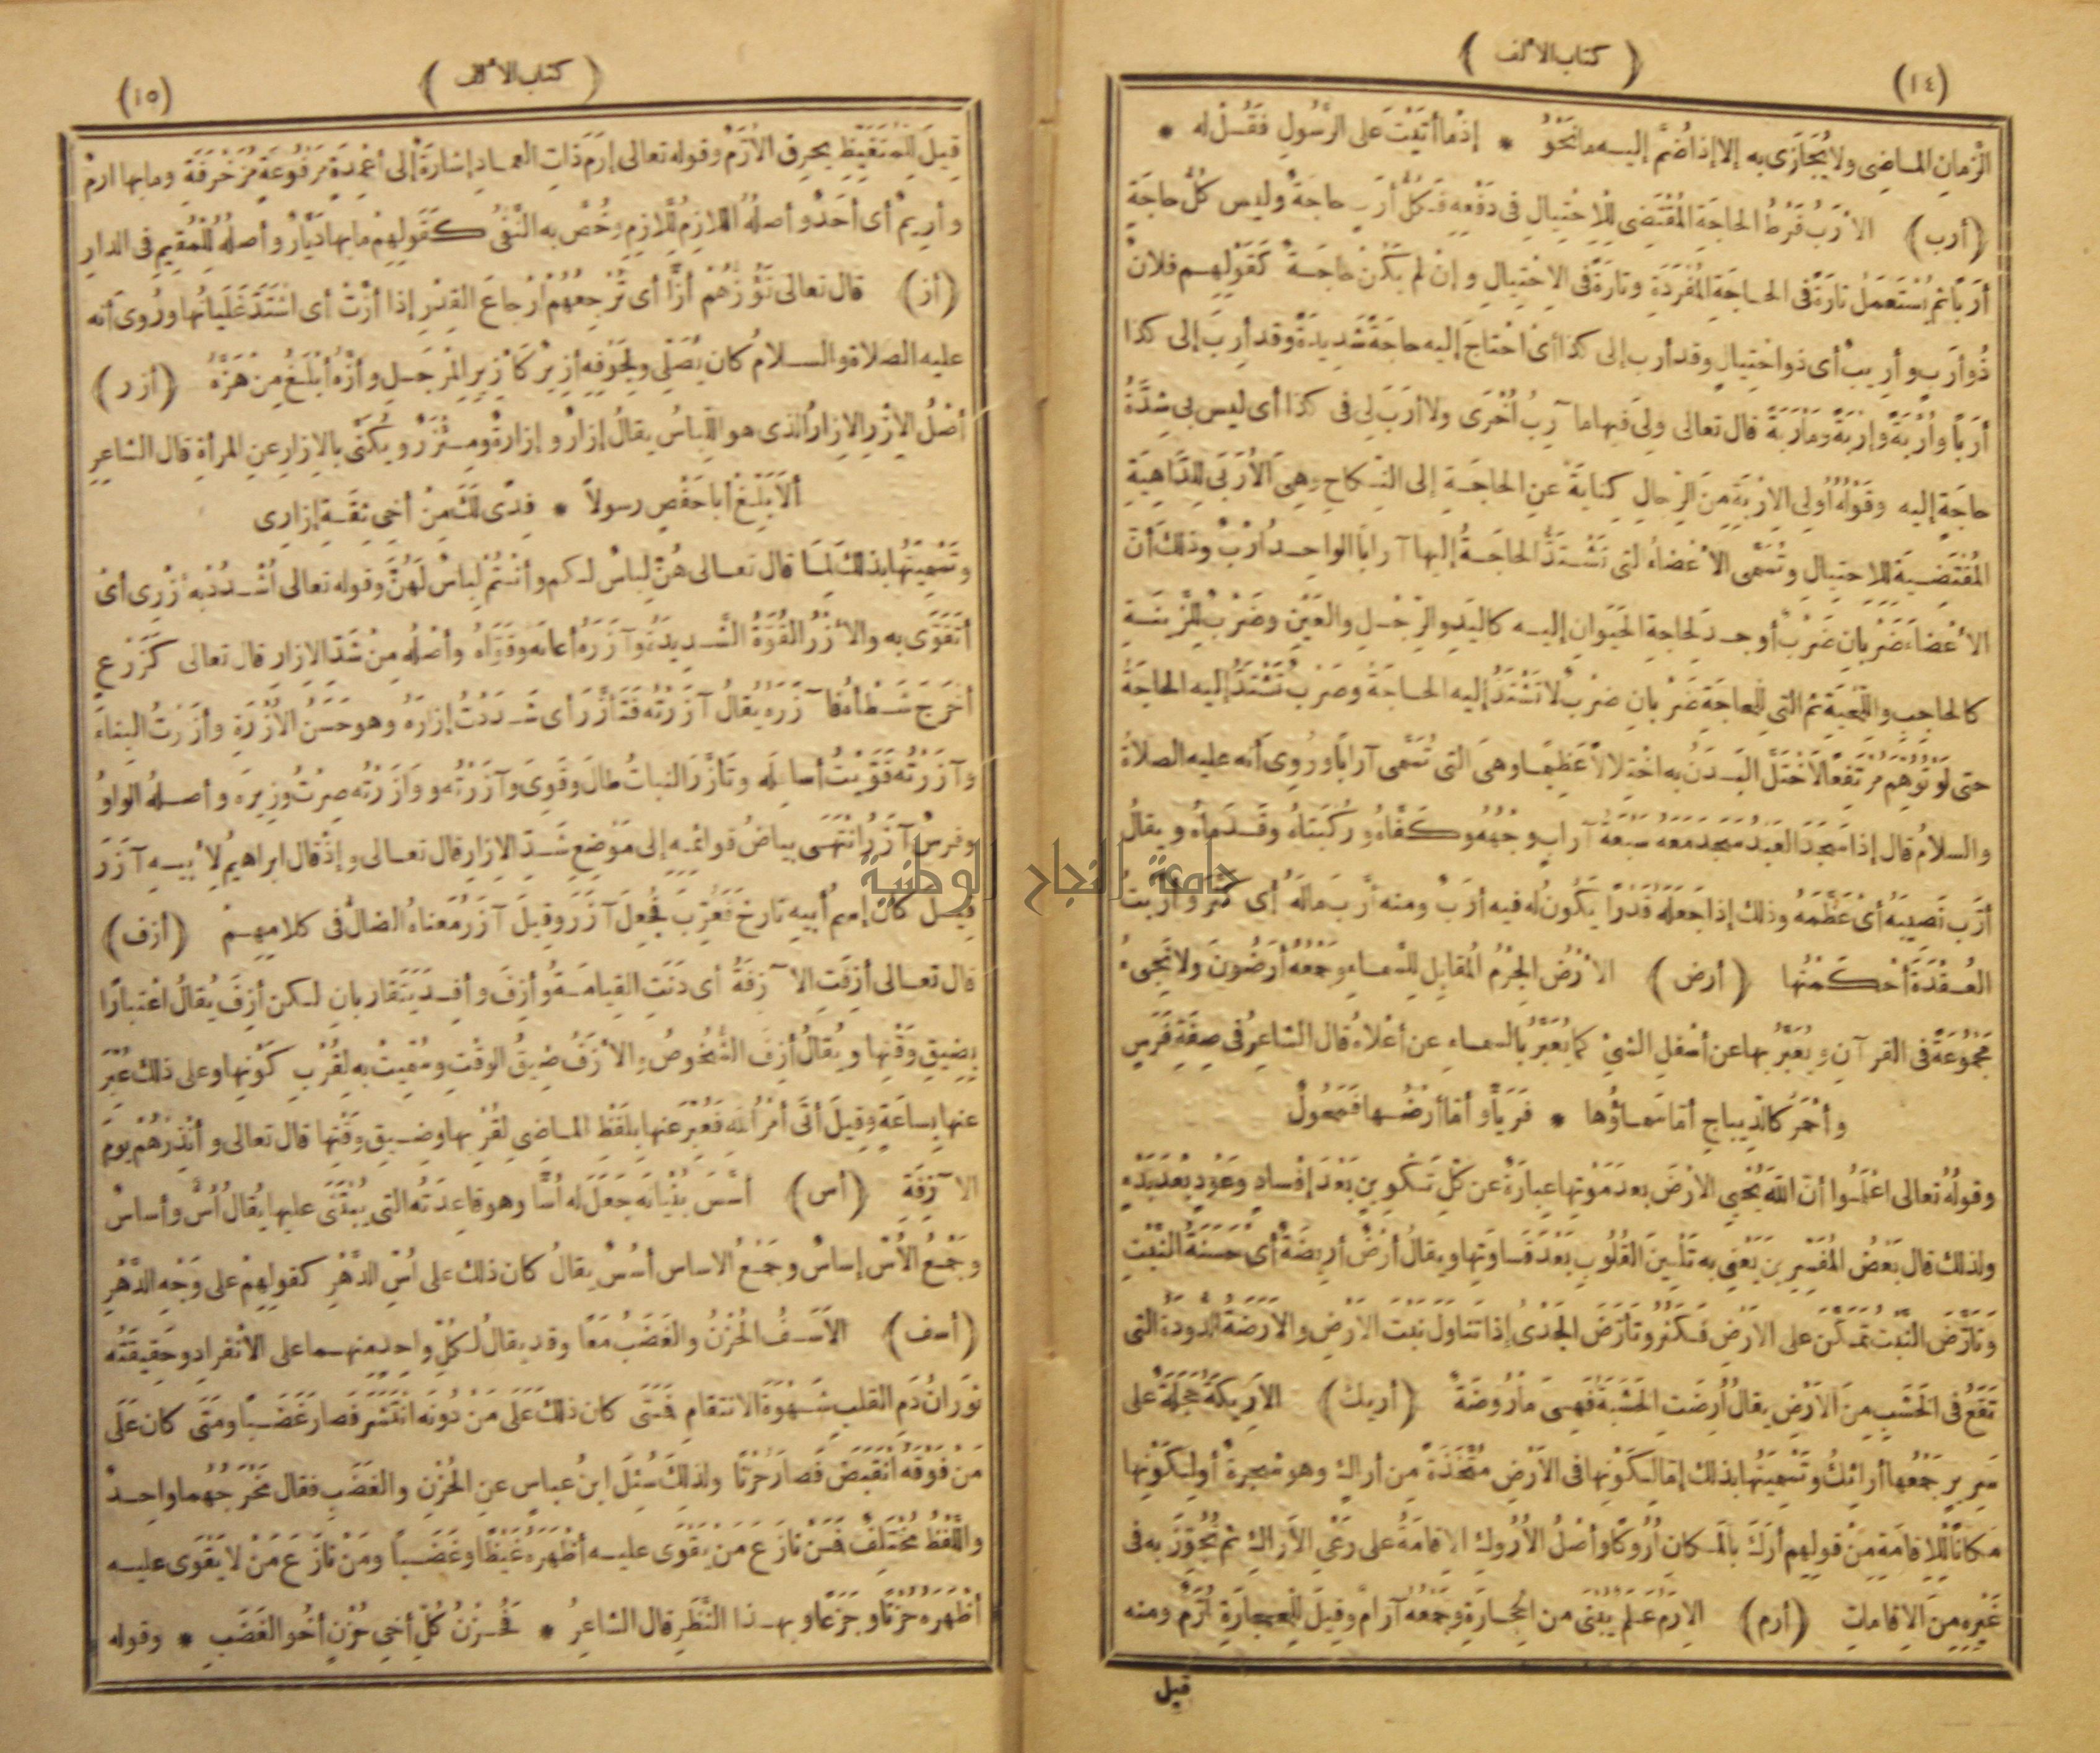 (١٤)
﴿ كتاب الألف ﴾
الزمانِ الماضِى ولا يُجازَى به إلا إذا ضُمَّ إليه ما نحوُ * إذْما أتَيْتَ على الرَّسُولِ فقُلْ له *
(أرب) الأرَبُ فَرْطُ الحاجَةِ المُقْتَضِى للِاحْتِيالِ فى دَفْعِهِ فَكلُّ أرَبٍ حاجَةٌ وليس كُلُّ حاجَةٍ
أرَبًا ثم يُسْتَعمَلُ تارَةً فى الحاجَةِ المُفْرَدَةِ وتارَةً فى الاحْتِيالِ وإنْ لم يَكُنْ حاجَةً كَقَوْلِهِم فلانٌ
ذُو أرَبٍ وأرِيبٌ أى ذو احْتِيالٍ وقد أرب إلى كذا أى احْتاجَ إليه حاجَةً شَدِيدَةً وقد أرِبَ إلى كذا
أرَبًا وأُرْبَةً وإرْبَةً ومَأْرَبَةً قال تعالى ولِىَ فيها مآرِبُ أُخْرَى ولا أرَبَ لِى فى كذا أى ليس بى شِدَّةُ
حاجَةٍ إليه وقَوْلُهُ أُولِى الإِرْبَةِ مِنَ الرِّجالِ كِنايَةٌ عنِ الحاجَةِ إلى النِّكاحِ وهِىَ الأُرَبَى للدَّاهِيَةِ
المُقْتَضِيَةِ للاحتِيالِ وتُسَمَّى الأعْضاءُ التى تَشْتَدُّ الحاجَةُ إليها آرابًا الواحِدُ إرْبٌ وذلك أنَّ
الأعْضاءَ ضَرْبانِ ضَرْبٌ أُوجِدَ لحاجَةِ الحَيَوانِ إليه كاليَدِ والرِّجْلِ والعَيْنِ وضَرْبٌ للزِّينَةِ
كالحاجِبِ واللِّحْيَةِ ثم التى للحاجَةِ ضَرْبانِ ضَرْبٌ لا تَشْتَدُّ إليه الحاجَةُ وضَرْبٌ تَشْتَدُّ إليه الحاجَةُ
حتى لَوْ تُوُهِّمَ مُرْتَفِعًا لاخْتَلَّ البَدَنُ به اخْتِلالًا عَظِيمًا وهى التى تُسَمَّى آرابًا ورُوِىَ أنه عليه الصلاةُ
والسلامُ قال إذا سَجَدَ العَبْدُ سَجَدَ مَعَهُ سَبْعَةُ آرابٍ وجْهُهُ وكَفَّاهُ ورُكْبَتاهُ وقَدَماهُ ويقالُ
أرَّبَ نَصِيبَهُ أىْ عَظَّمَهُ وذلك إذا جَعَلَهُ قَدْرًا يَكُونُ له فيه أرَبٌ ومنه أرَّبَ مالَهُ أى كَثَّرَ وأرَّبْتُ
العُقْدَةَ أحْكَمْتُها (أرض) الأرْضُ الجِرْمُ المُقابِلُ للسَّماءِ وجَمْعُهُ أرَضُونَ ولا تَجِىءُ
مَجْمُوعَةً فى القرآنِ ويُعَبَّرُ بها عن أسْفَلِ الشئِ كما يُعَبَّرُ بالسماءِ عن أعْلاهُ قال الشاعِرُ فى صِفَةِ فَرَسٍ
وأحْمَرَ كالدِّيباجِ أمّا سَماؤُها * فَرَيّا وأمّا أرْضُها فَمَحُولُ
وقولُه تعالى اعْلَمُوا أنَّ اللهَ يُحْيِى الأرْضَ بعدَ مَوْتِها عِبارَةٌ عن كُلِّ تَكْوِينٍ بَعْدَ إفْسادٍ وعَوْدٍ بَعْدَ بَدْءٍ
ولذلك قال بَعْضُ المُفَسِّرِينَ يَعْنِى به تَلْيِينَ القُلُوبِ بَعْدَ قَساوَتِها ويقالُ أرْضٌ أرِيضَةٌ أى حَسَنَةُ النَّبْتِ
وتَأَرَّضَ النَّبْتُ تَمَكَّنَ على الأرْضِ فَكَثُرَ وتَأَرَّضَ الجَدْىُ إذا تَناوَلَ نَبْتَ الأرْضِ والأرَضَةُ الدُّودَةُ التى
تَقَعُ فى الخَشَبِ مِنَ الأرْضِ يقالُ أُرِضَتِ الخَشَبَةُ فَهِىَ مَأْرُوضَةٌ (أريك) الأرِيكَةُ حَجَلَةٌ على
سَرِيرٍ جَمْعُها أرائِكُ وتَسْمِيَتُها بذلك إمّا لِكَوْنِها فى الأرْضِ مُتَّخَذَةً مِن أراكٍ وهو شَجرةٌ أو لِكَوْنِها
مَكانًا للإقامَةِ مِنْ قولهِم أرَكَ بالمكانِ أُرُوكًا وأصْلُ الأُرُوكِ الإقامَةُ على رَعْىِ الأراكِ ثم تُجُوِّزَ به فى
غَيْرِهِ مِنَ الإقاماتِ (أرم) الإرَمُ عَلَمٌ يُبْنَى من الحِجارَةِ وجَمْعُه آرامٌ وقِيلَ للحِجارَةِ أُرَّمٌ ومنه
قيل
(١٥)
﴿ كتاب الألف ﴾
قِيلَ للمُتَغَيِّظِ يحرق الأُرَّمَ وقوله تعالى إرَمَ ذاتِ العمادِ إشارَةٌ إلى أعْمِدَةٍ مَرْفُوعَةٍ مُزَخْرَفَةٍ وما بها أرِمٌ
وأرِيمٌ أى أحَدٌ وأصلُهُ اللازِمُ للأرْمِ وخُصَّ به النَّفْىُ كَقَولِهِمْ ما بها دَيَّارٌ وأصلُهُ للمُقِيمِ فى الدارِ
(أز) قال تعالى تَؤُزُّهُمْ أزًّا أى تُرْجِعُهُمْ إرْجاعَ القِدْرِ إذا أزَّتْ أى اشْتَدَّ غَلَيانُها ورُوِىَ أنه
عليه الصلاةُ والسلامُ كان يُصَلِّى ولِجَوْفِه أزِيزٌ كَأَزِيزِ المِرْجَلِ وأزَّهُ أبْلَغُ مِنْ هَزَّهُ (أزر)
أصْلُ الأزْرِ الإزارُ الذى هو اللِّباسُ يقالُ إزارٌ وإزارةٌ ومِئْزَرٌ ويُكَنَّى بالإزارِ عنِ المرأةِ قال الشاعِرِ
ألاَ بَلِّغْ أبا حَفْصٍ رسولًا * فِدًى لَكَ مِنْ أخِى ثِقَةٍ إزارِى
وتَسْمِيَتُها بذلك لِما قال تعالى هُنَّ لِباسٌ لكم وأنتُمْ لِباسٌ لَهُنَّ وقوله تعالى اشْدُدْ به أزْرِى أىْ
أتَقَوَّى به والأزْرُ القُوَّةُ الشَّدِيدَةُ وآزَرَهُ أعانَه وقَوَّاهُ وأصْلُهُ مِنْ شَدِّ الإزارِ قال تعالى كَزَرْعٍ
أخْرَجَ شَطْأَهُ فآزَرَهُ يُقالُ آزَرْتُهُ فَتَأَزَّرَ أى شَدَدْتُ إزارَهُ وهو حَسَنُ الأُزْرَةِ وأزَرْتُ البِناءَ
وآزَرْتُه قَوَّيْتُ أسافِلَه وتَأَزَّرَ النباتُ طالَ وقَوِىَ وآزَرْتُه ووَازَرْتُه صِرْتُ وزِيرَه وأصلُه الواوُ
وفرسٌ آزَرُ انْتَهَى بياضُ قوائمِهِ إلى مَوْضِعِ شَدِّ الإزارِ قال تعالى وإذْ قال ابراهيمُ لأبيهِ آزَرَ
قيلَ كان اسمُ أبيهِ تارخَ فَعُرِّبَ فَجُعِلَ آزَرَ وقِيلَ آزَرُ مَعْناهُ الضالُّ فى كلامِهِمْ (أزف)
قال تعالى أزِفَتِ الآزِفَةُ أى دَنَتِ القِيامَةُ وأزِفَ وأفِدَ يَتَقارَبانِ لكن أزِفَ يُقالُ اعْتِبارًا
بِضِيقِ وقْتِها ويُقالُ أزِفَ الشُّخُوصُ والأزَفُ ضِيقُ الوقْتِ وسُمِّيَتْ به لِقُرْبِ كَوْنِها وعلى ذلك عُبِّرَ
عنها بِساعَةٍ وقِيلَ أتَى أمْرُ اللهِ فَعُبِّرَ عنها بِلَفْظِ الماضِى لقُرْبِها وضِيقِ وقْتِها قال تعالى وأنْذِرْهُمْ يومَ
الآزِفَةِ (أس) أسَّسَ بُنْيانَه جَعَلَ له أُسًّا وهو قاعِدَتُه التى يُبْتَنَى عليها يُقالُ أُسٌّ وأساسٌ
وجَمْعُ الأُسِّ إساسٌ وجَمْعُ الأساسِ أُسُسٌ يقالُ كان ذلك على أُسِّ الدهْرِ كقولِهِمْ على وَجْهِ الدَّهْرِ
(أسف) الأسَفُ الحُزْنُ والغَضَبُ مَعًا وقد يقالُ لِكُلِّ واحِدٍ منهما على الانْفِرادِ وحَقِيقَتُه
ثَوَرانُ دَمِ القلبِ شَهْوَةَ الانتقامِ فَمَتَى كان ذلك عَلَى مَنْ دُونَه انْتَشَرَ فصار غَضَبًا ومَتَى كان عَلَى
مَنْ فَوْقَهُ انْقَبَضَ فصارَ حُزْنًا ولذلِكَ سُئِلَ ابنُ عباسٍ عنِ الحُزْنِ والغَضَبِ فقال مَخْرَجُهُما واحِدٌ
واللَّفْظُ مُخْتَلِفٌ فَمَنْ نازَعَ مَنْ يَقْوَى عليه أظْهَرَهُ غَيْظًا وغَضَبًا ومَنْ نازَعَ مَنْ لا يَقْوَى عليه
أظْهَرَهُ حُزْنًا وجَزَعًا وبهذا النَّظَرِ قال الشاعِرُ * فَحُزْنُ كُلِّ أخِى حُزْنٍ أخُو الغَضَبِ * وقوله
جامعة النجاح الوطنية